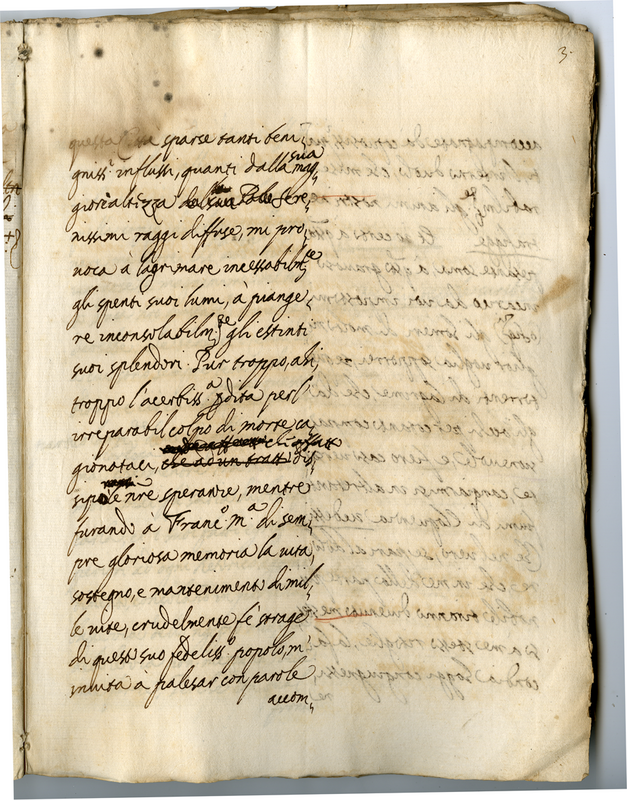 3.
questa Casa sparse tanti beni,
gniss.i influssi, quanti dalla sua mag,
gior altizza
nissimi raggi diffuse, mi pro,
uoca à lagrimare incessabilm.te
gli spenti suoi lumi, à piange,
re inconsolabilm.te gli estinti
suoi splendori. Pur troppo, ahi
troppo l'acerbiss.a p̱dita perl'
irreparabil colpo di morte ca,
gionataci, che ad un tratto dis,
sipò le nr̃e speranze, mentre
furando à Franc.o M.a di sem,
pre gloriosa memoria la uita
sostegno, e mantenimento di mil,
le uite, crudelmente fè strage
di questo suo fedeliss.o popolo, m'
inuita à palesar con parole
accom,